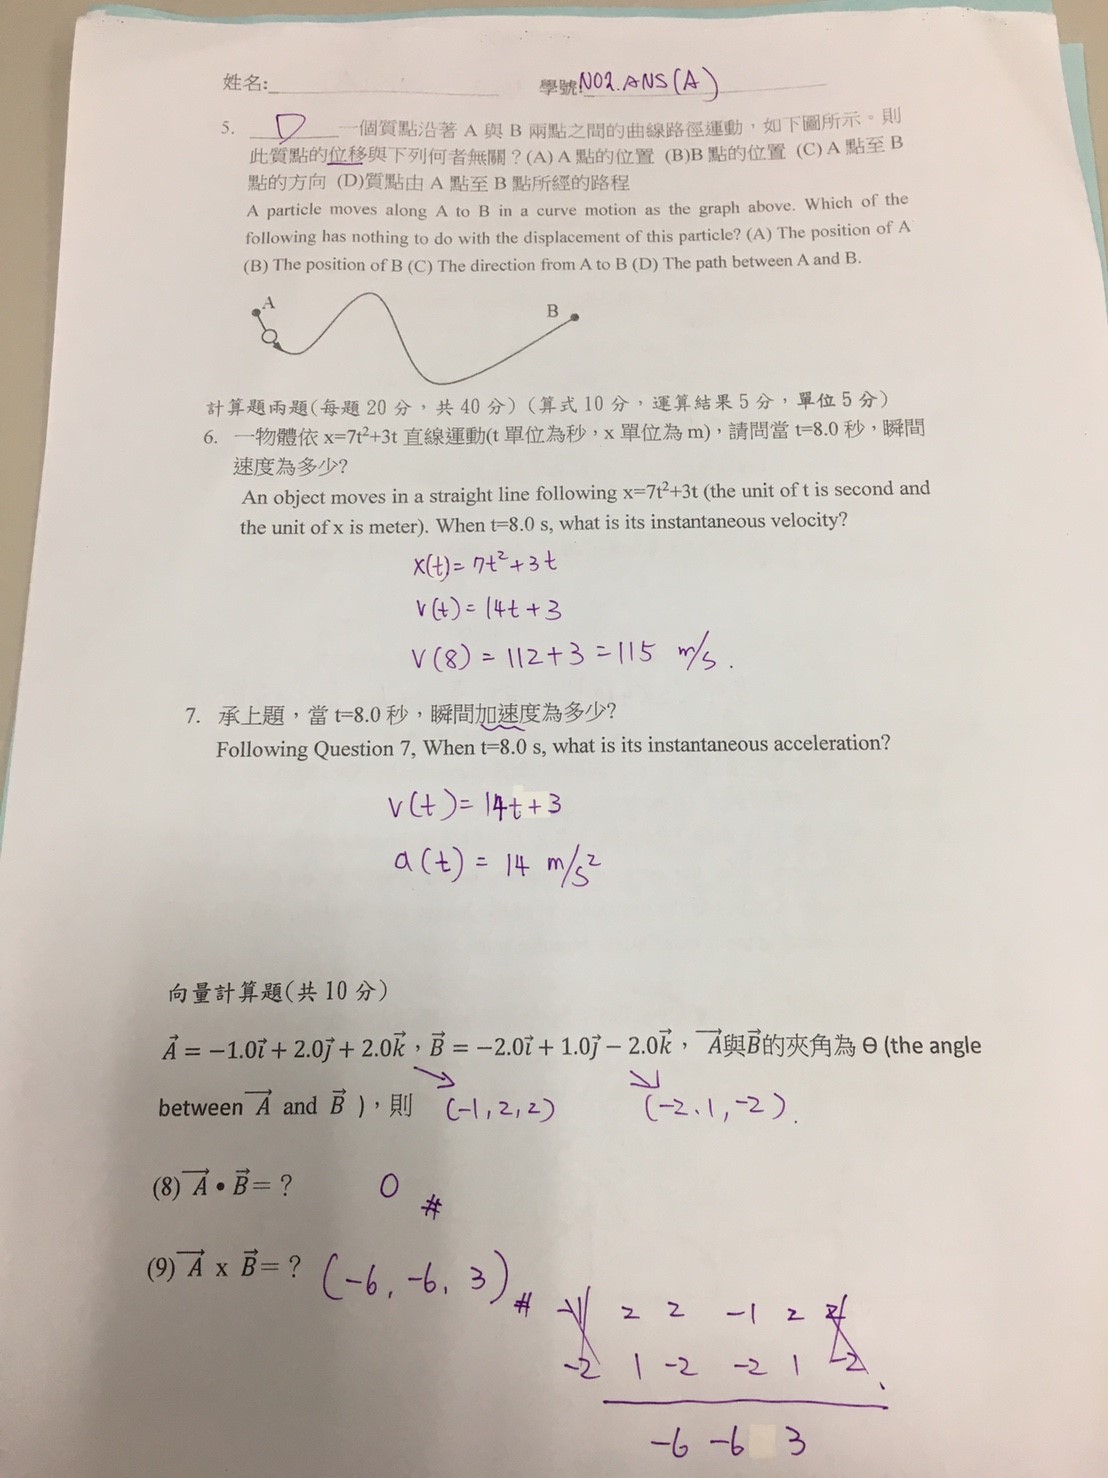 姓名: 學號: NO2. ANS(A)
5. D 一個質點沿著 A 與 B 兩點之間的曲線路徑運動，如下圖所示。則
此質點的位移與下列何者無關？(A) A 點的位置 (B)B 點的位置 (C) A 點至 B
點的方向 (D)質點由 A 點至 B 點所經的路程
A particle moves along A to B in a curve motion as the graph above. Which of the
following has nothing to do with the displacement of this particle? (A) The position of A
(B) The position of B (C) The direction from A to B (D) The path between A and B.
A B
計算題兩題(每題 20 分，共 40 分)（算式 10 分，運算結果 5 分，單位 5 分）
6. 一物體依 x=7t²+3t 直線運動(t 單位為秒，x 單位為 m)，請問當 t=8.0 秒，瞬間
速度為多少?
An object moves in a straight line following x=7t²+3t (the unit of t is second and
the unit of x is meter). When t=8.0 s, what is its instantaneous velocity?
x(t)= 7t²+3t
v(t)= 14t+3
v(8) = 112+3 =115 m/s.
7. 承上題，當 t=8.0 秒，瞬間加速度為多少?
Following Question 7, When t=8.0 s, what is its instantaneous acceleration?
v(t)= 14t+3
a(t) = 14 m/s²
向量計算題(共 10 分)
A⃗ = −1.0i⃗ + 2.0j⃗ + 2.0k⃗，B⃗ = −2.0i⃗ + 1.0j⃗ − 2.0k⃗， A⃗與B⃗的夾角為 Θ (the angle
between A⃗ and B⃗ )，則 (-1,2,2) (-2.1,-2).
(8) A⃗ • B⃗= ? 0 #
(9) A⃗ x B⃗= ? (-6, -6, 3) #
-1 2 2 -1 2 2
-2 1 -2 -2 1 -2.
-6 -6 3